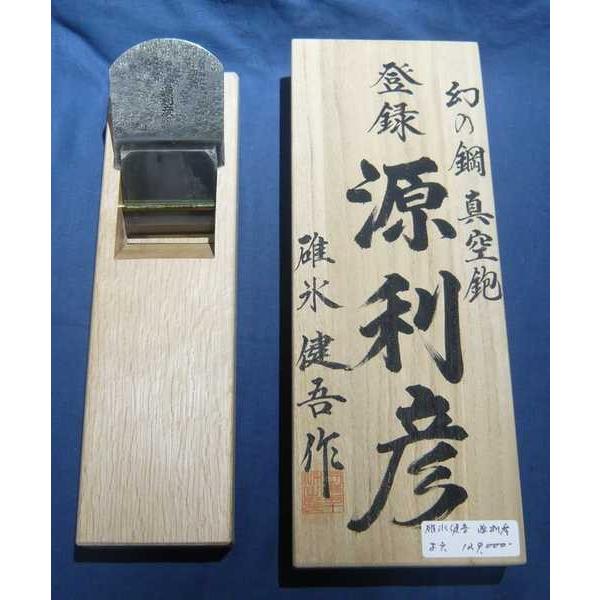 幻の鋼 真空鉋
登録
源利彦
碓氷健吾作
碓氷健吾 源利彦
129,000-